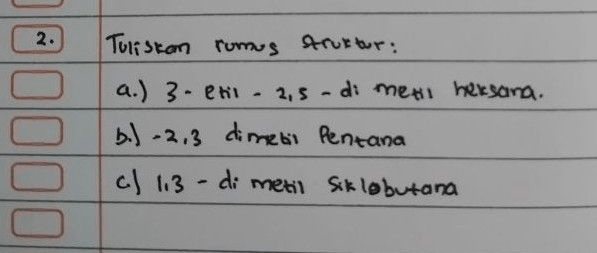 2. Tuliskan rumus struktur:
a.) 3 - etil - 2,5 - di metil heksana.
b.) - 2,3 dimetil Pentana
c) 1,3 - di metil siklobutana